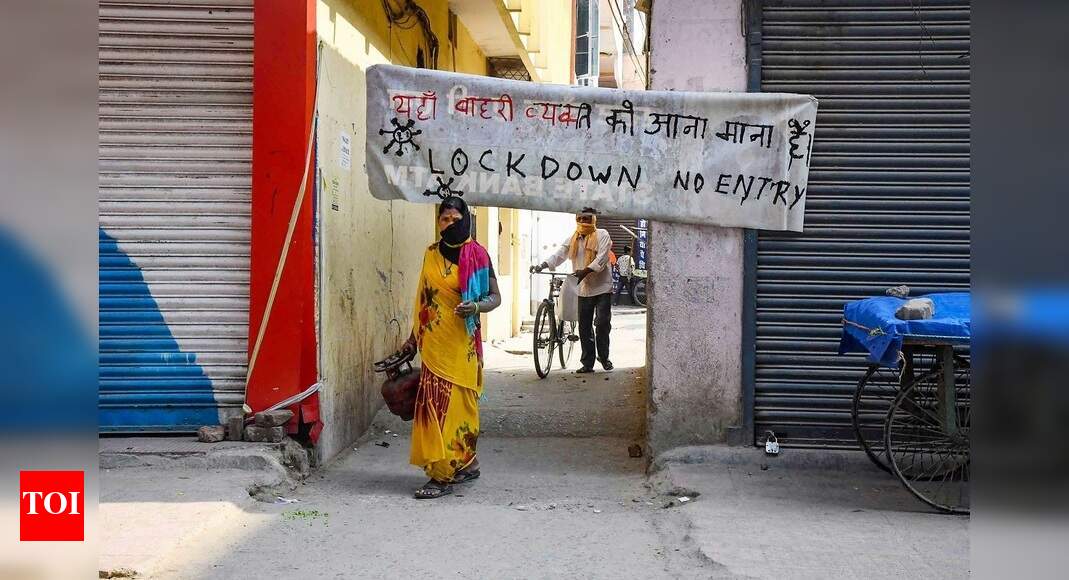 यहाँ बाहरी व्यक्ति को आना माना है
LOCKDOWN NO ENTRY
TOI